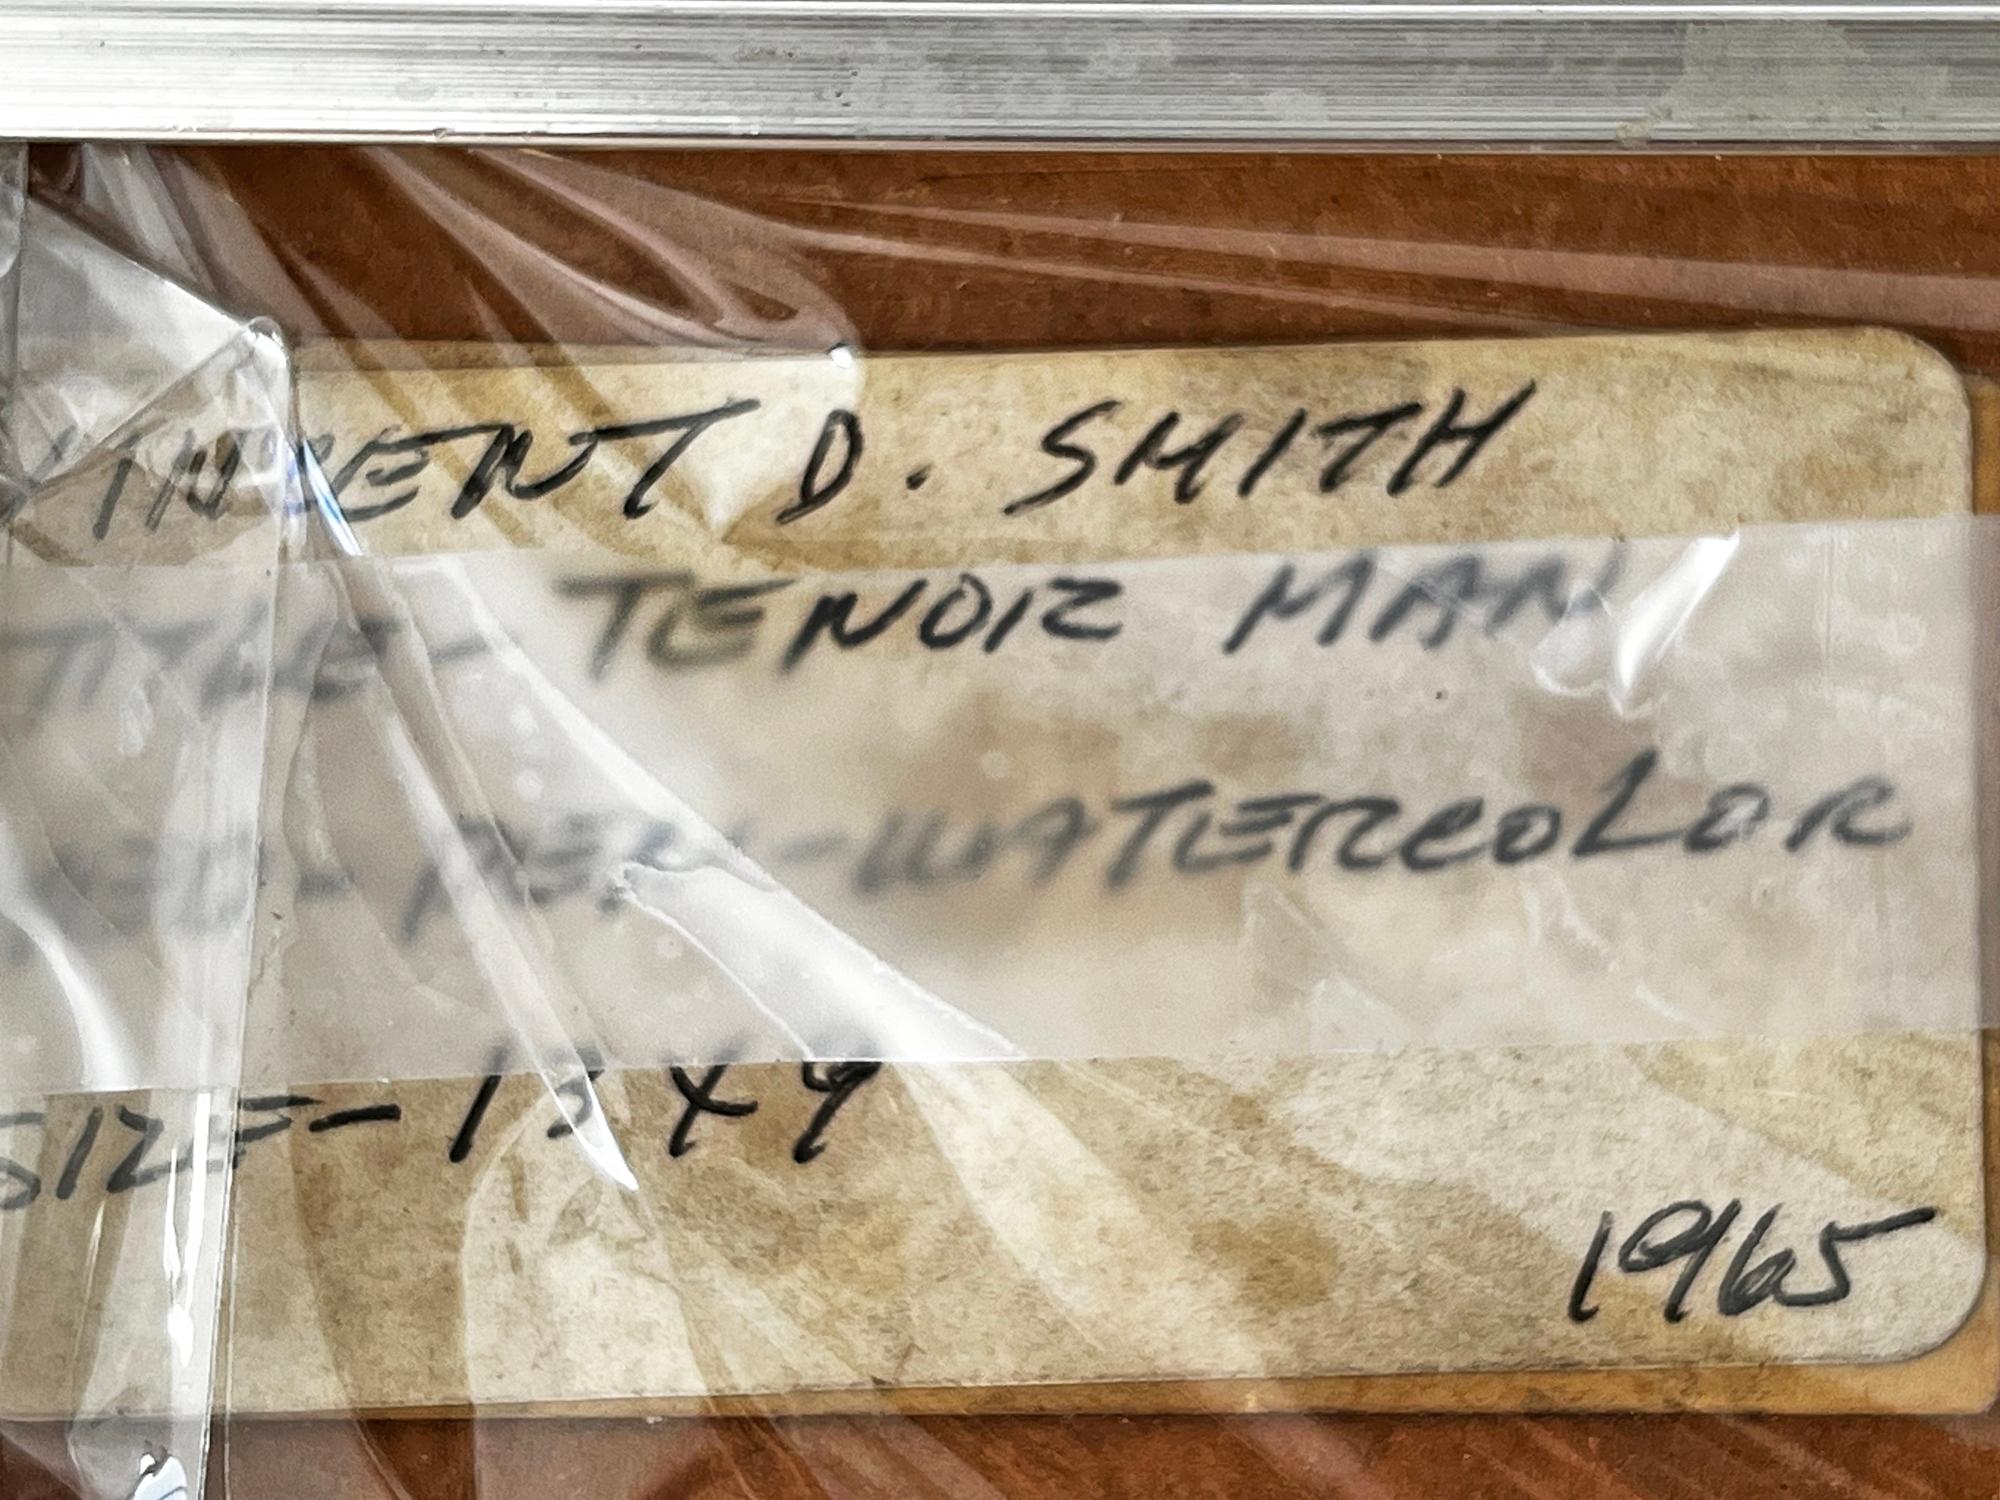 VINCENT D. SMITH
TITLE- TENOR MAN
MED- PEN-WATERCOLOR
SIZE- 13 X 9
1965